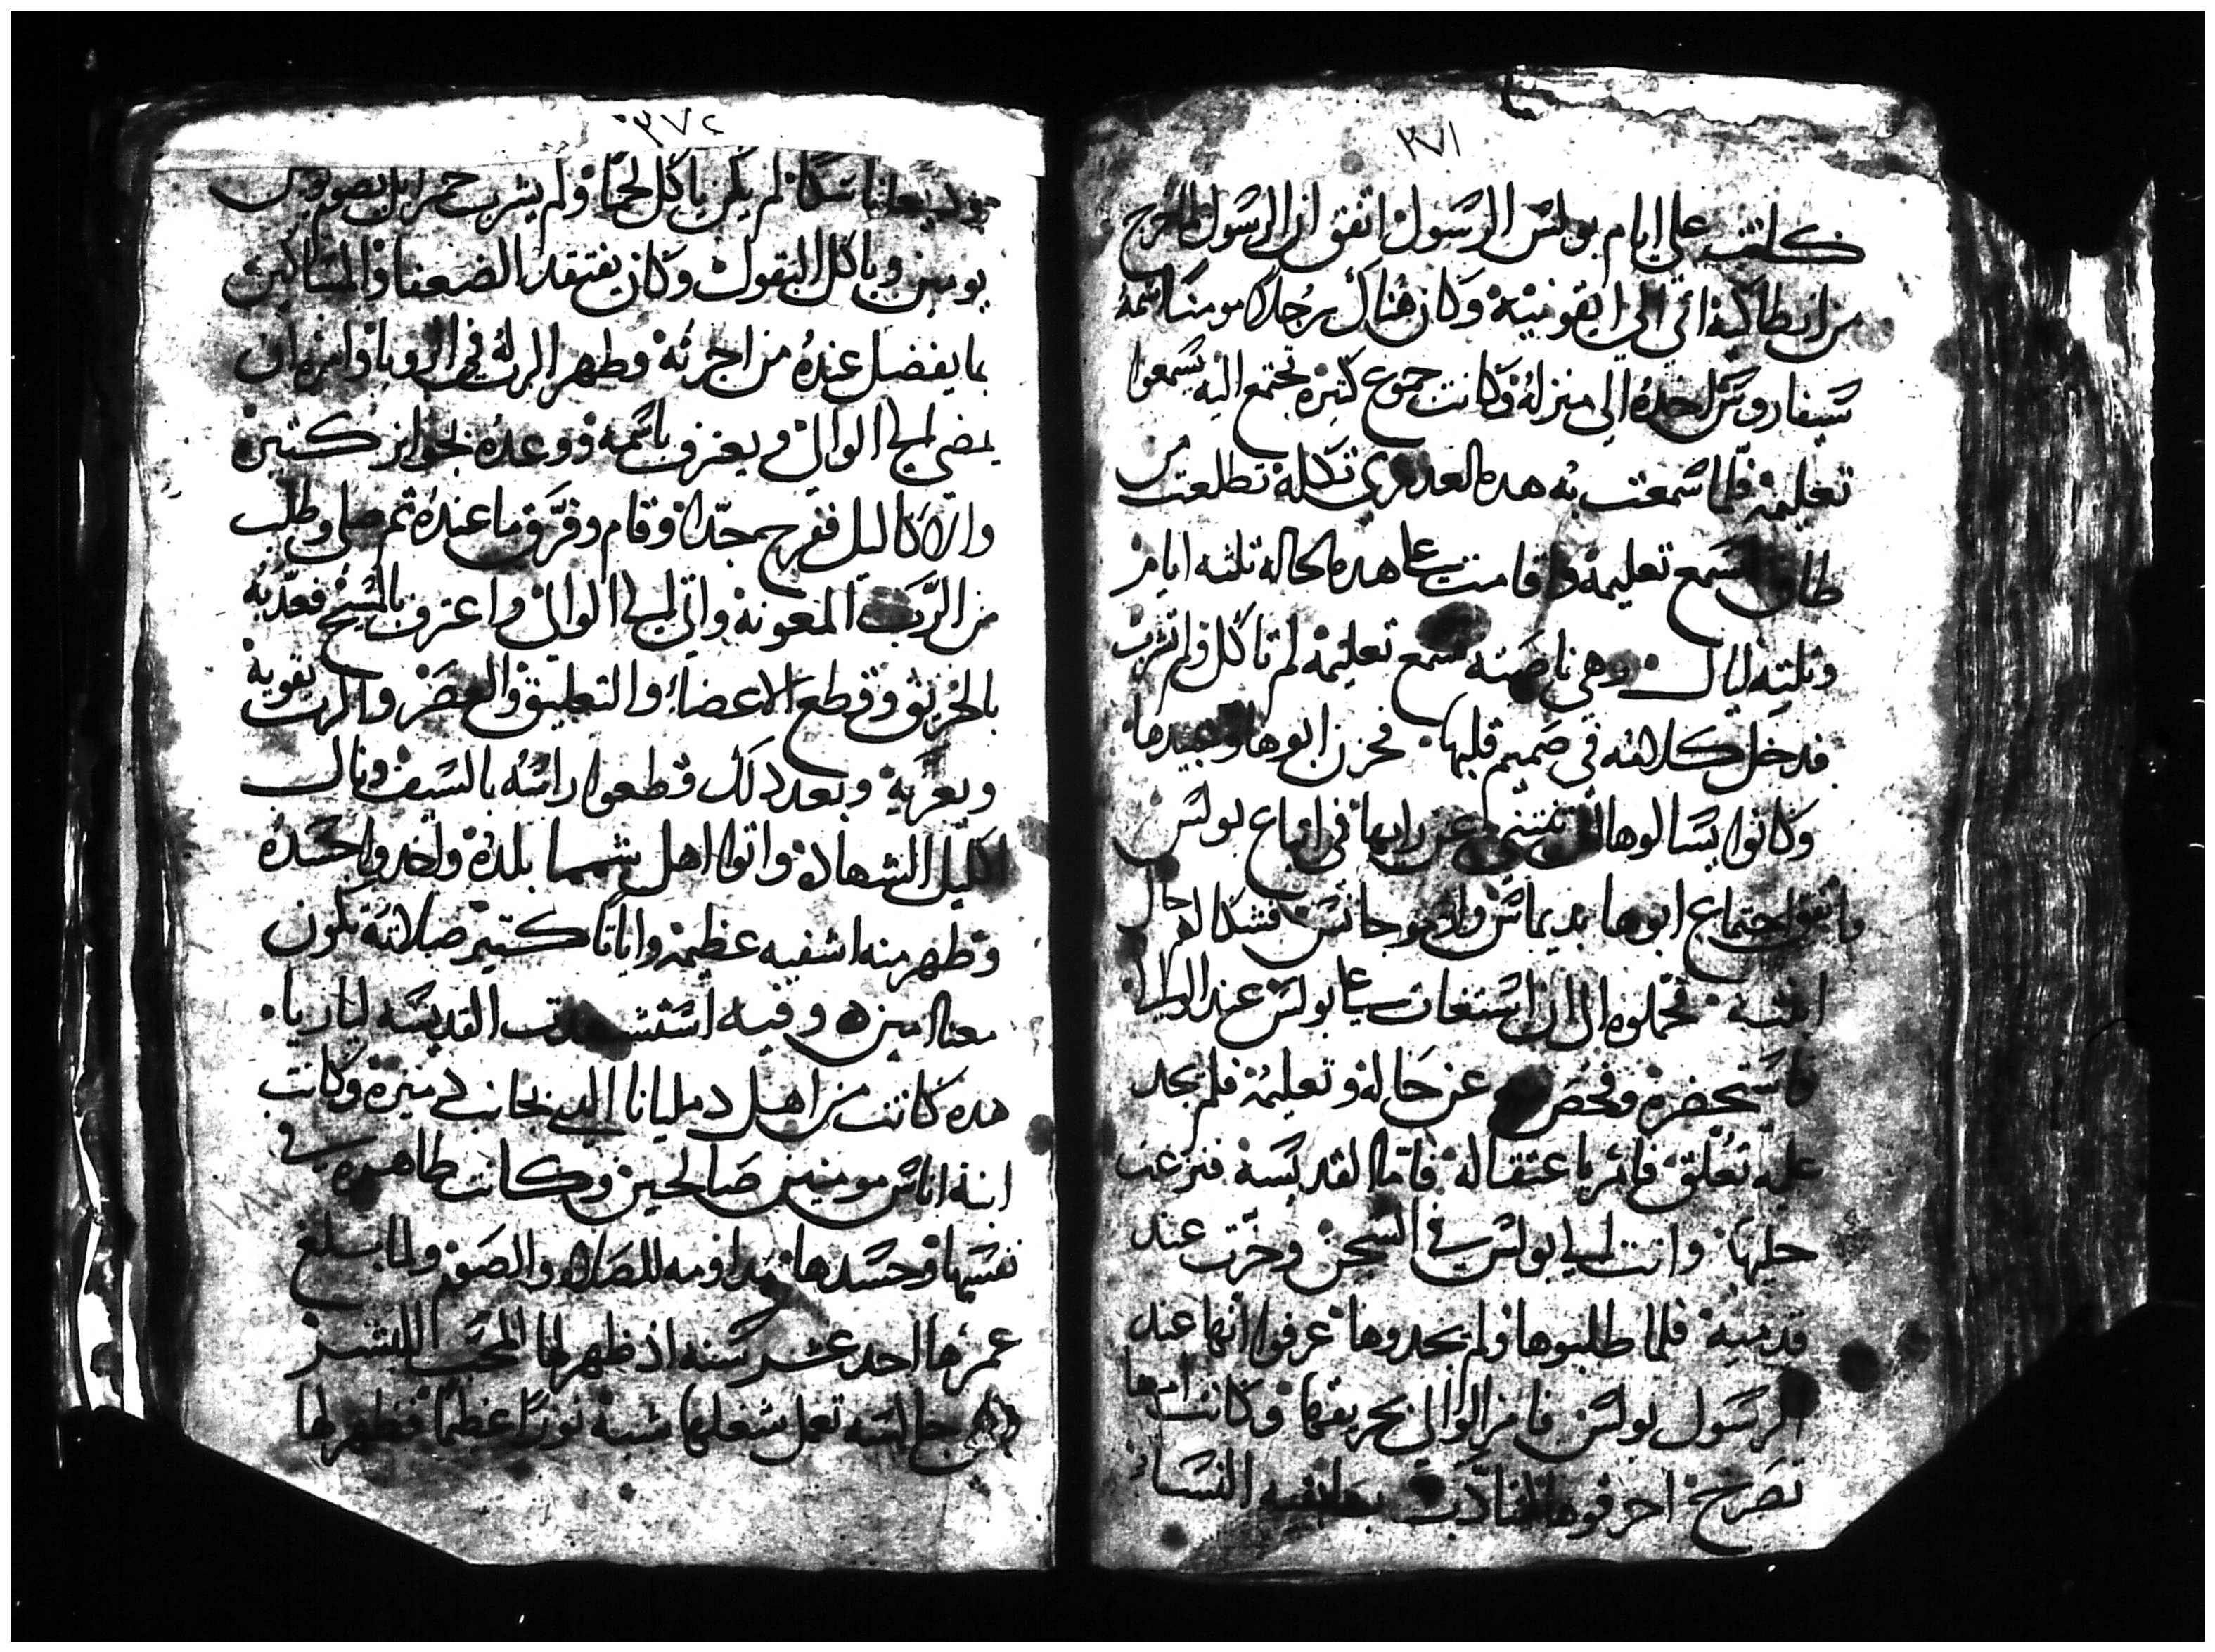 ٣٧١
كانت على ايام بولس الرسول اتفق ان الرسول لما خرج
من انطاكية اتى الى ايقونيية وكان هناك رجلا مومنا اسمه
سيفاروس اخده الى منزله وكانت جموع كتيرة تجتمع اليه يسمعوا
تعليمه فلما سمعت به هده العدرى تكلة تطلعت من
طاق تسمع تعليمه واقامت على هده الحالة تلته ايام
وتلته ليال وهي ناصته تسمع تعليمه لم تاكل ولم تشرب
فدخل كلامه في صميم قلبها فحزن ابوها وعبيدها
وكانوا يسالوها ان تنتني عن رايها في اتباع بولس
واتفق اجتماع ابوها بديماس وارموجانس فشكا لهم حال
ابنته فحملوه الى ان استغات على بولس عند الوالي
فاستحضره وفحص عن حاله وتعليمه فلم يجد
عليه تعلق فامر باعتقاله فاما القديسة فنزعت
حليها واتت الى بولس في السجن وخرت عند
قدميه فلما طلبوها ولم يجدوها عرفوا انها عند
الرسول بولس فامر الوالي بحريقها وكانت امها
تصرخ احرقوها لتتادب بها بقية النسا
٣٧٢
وديعا ناسكا لم يكن ياكل لحما ولم يشرب خمرا بل يصوم يومين
يومين وياكل البقول وكان يفتقد الضعفا والمساكين
بما يفضل عنده من اجرته وظهر الرب له في الرويا وامره ان
يمضي الى الوالي ويعترف باسمه ووعده بجوايز كتيرة
والاكاليل ففرح جدا وقام وفرق ما عنده تم صلى وطلب
من الرب المعونة واتى الى الوالي واعترف بالمسيح فعدبه
بالحريق وقطع الاعضا والتعليق والعصر والرب يقويه
ويعزيه وبعد دلك قطعوا راسه بالسيف ونال
اكليل الشهادة واتوا اهل شمما بلده واخدوا جسده
وظهر منه اشفيه عظيمة واياتا كتير صلاته تكون
معنا امين وفيه استشهدت القديسه ليارياه
هده كانت من اهل دمليانا التي بجانب دميرة وكانت
ابنة اناس مومنين صالحين وكانت طاهره في
نفسها وجسدها مداومه للصلاه والصوم ولما بلغ
عمرها احد عشر سنه اذ ظهر لها المحب البشر
وهي جالسه تعمل شغلها شبه نورا عظيما فظهر لها